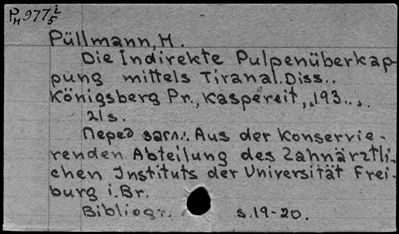 P 977 2/5
H
Püllmann, M.
Die Indirekte Pulpenüberkap-
pung mittels Tiranal. Diss..
Königsberg Pr., Kaspereit, ,193..,
21s.
Перед загл.: Aus der Konservie-
renden Abteilung des Zahnärztli-
chen Instituts der Universität Frei-
burg i. Br.
Bibliogr. s.19-20.